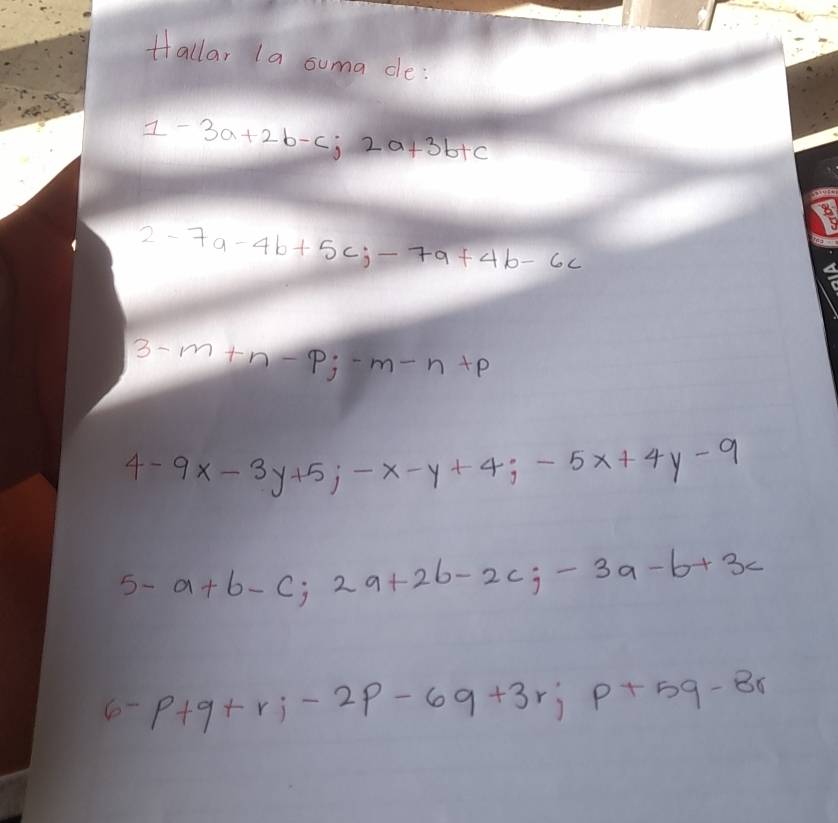 Hallar la suma de:
1 - 3a+2b-c; 2a+3b+c
2 - 7a-4b+5c; - 7a+4b- 6c
3 - m +n - p; -m-n +p
4 - 9x - 3y+5; -x-y+4; - 5x+4y-9
5 - a+b-c; 2a+2b-2c; - 3a-b+3c
6 - p+q+r; - 2p - 6q+3r; p+5q-8r